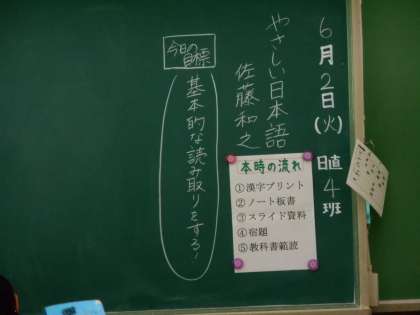 6月2日(火) 日直4班
やさしい日本語
佐藤和之
今日の
目標
基本的な読み取りをする!
本時の流れ
①漢字プリント
②ノート板書
③スライド資料
④宿題
⑤教科書範読